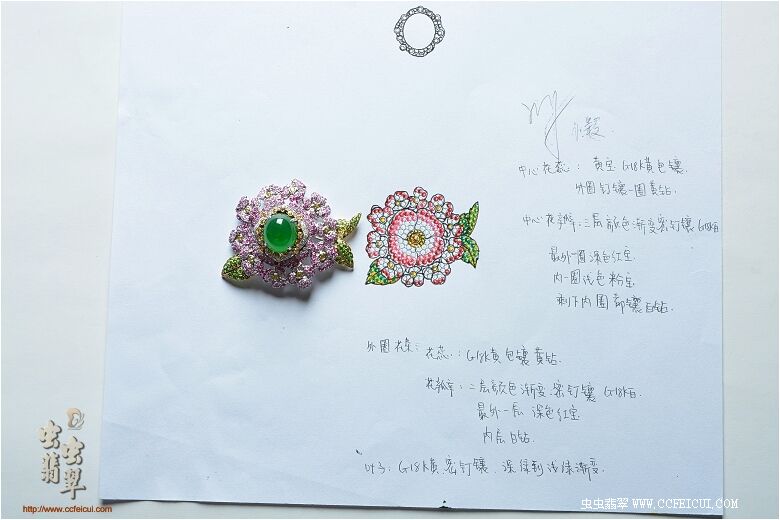 小毅.
中心花蕊: 黄宝 G18K黄包镶.
外圈钉镶一圈黄钻.
中心花瓣: 三层颜色渐变密钉镶 G18K白
最外一圈深色红宝
内一圈浅色粉宝
剩下内圈都镶白钻.
外圈花朵: 花蕊: G18K黄包镶黄钻.
花瓣: 二层颜色渐变.密钉镶 G18K白.
最外一层 深色红宝
内层白钻.
叶子: G18K黄.密钉镶. 深绿到浅绿渐变.
虫虫翡翠
http://www.ccfeicui.com
虫虫翡翠 WWW.CCFEICUI.COM